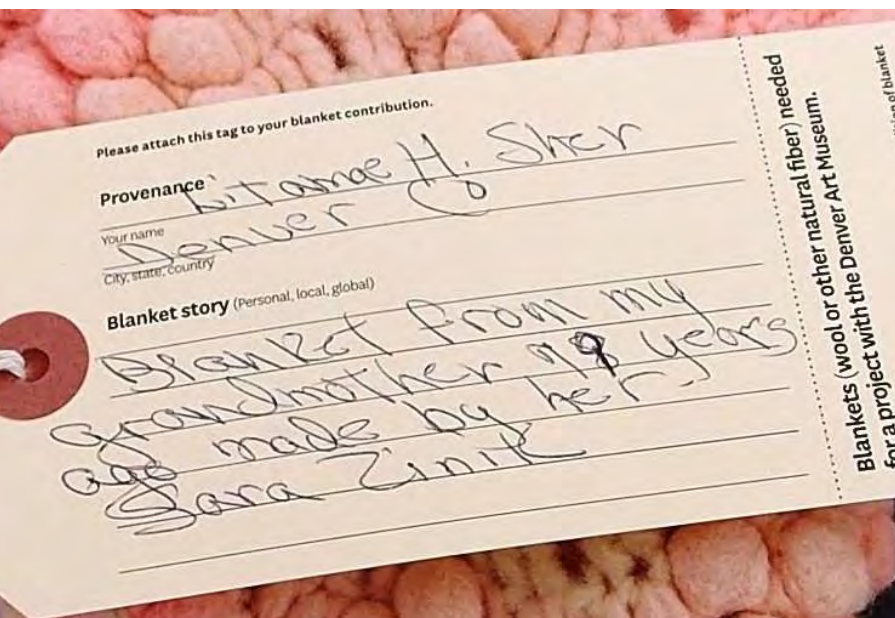 Please attach this tag to your blanket contribution.
Provenance
Litamae H. Sher
Your name
Denver CO
City, state, country
Blanket story (Personal, local, global)
Blanket from my
grandmother years
ago made by her.
Sara Zinik
Blankets (wool or other natural fiber) needed
for a project with the Denver Art Museum.
of blanket